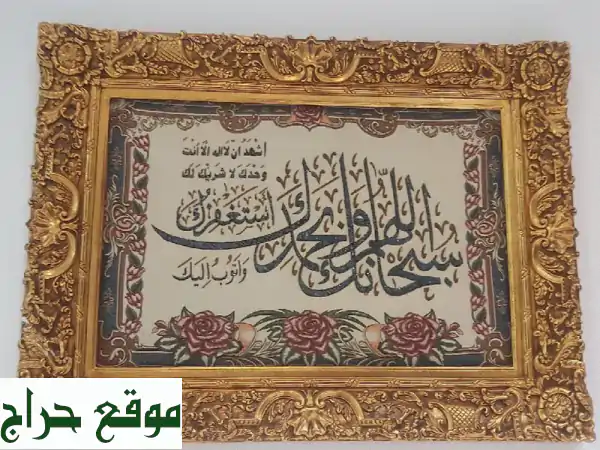 سبحانك اللهم وبحمدك
أشهد ان لا اله الا أنت
وحدك لا شريك لك
أستغفرك
وأتوب إليك
موقع حراج